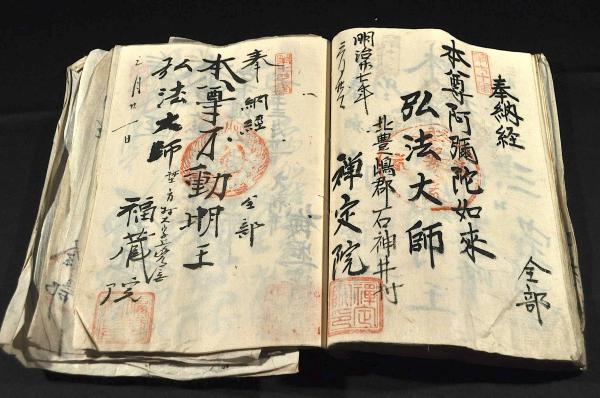 奉納経
全部
本尊阿彌陀如来
弘法大師
北豊嶋郡石神井村
禅定院
明治廿七年
奉納経
全部
本尊不動明王
弘法大師
福蔵院
三月九日